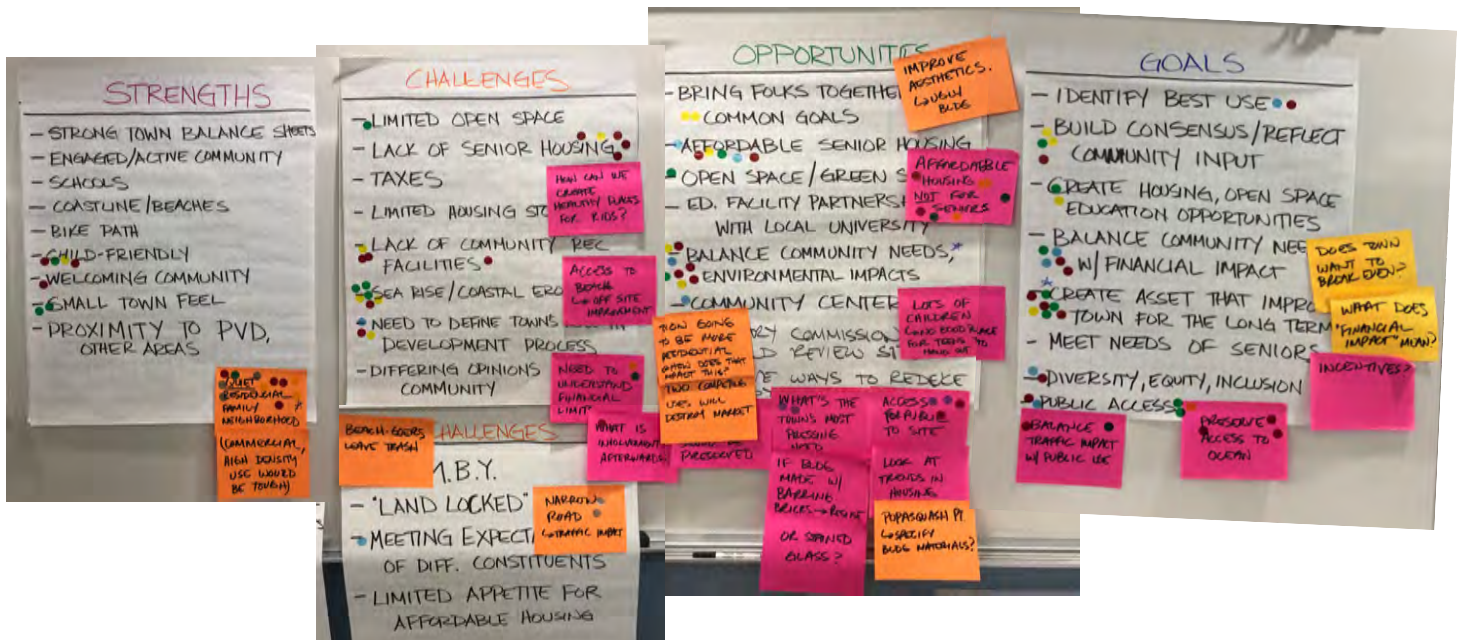 STRENGTHS
- STRONG TOWN BALANCE SHEETS
- ENGAGED/ACTIVE COMMUNITY
- SCHOOLS
- COASTLINE/BEACHES
- BIKE PATH
- CHILD-FRIENDLY
- WELCOMING COMMUNITY
- SMALL TOWN FEEL
- PROXIMITY TO PVD,
OTHER AREAS
QUIET
RESIDENTIAL
FAMILY
NEIGHBORHOOD
(COMMERCIAL,
HIGH DENSITY
USE WOULD
BE TOUGH)
CHALLENGES
- LIMITED OPEN SPACE
- LACK OF SENIOR HOUSING
- TAXES
- LIMITED HOUSING STO
- LACK OF COMMUNITY REC
FACILITIES
- SEA RISE/COASTAL ERO
- NEED TO DEFINE TOWN'S IN
DEVELOPMENT PROCESS
- DIFFERING OPINIONS
COMMUNITY
HOW CAN WE
CREATE
HEALTHY PLACES
FOR KIDS?
ACCESS TO
BEACH
↳ OFF SITE
IMPROVMENT
NEED TO
UNDERSTAND
FINANCIAL
LIMIT
CHALLENGES
M.B.Y.
- "LAND LOCKED"
- MEETING EXPECT
OF DIFF. CONSTITUENTS
- LIMITED APPETITE FOR
AFFORDABLE HOUSING
BEACH-GOERS
LEAVE TRASH
NARROW
ROAD
↳ TRAFFIC IMPACT
WHAT IS
INVOLVEMENT
AFTERWARDS
OPPORTUNITIES
- BRING FOLKS TOGETHE
COMMON GOALS
- AFFORDABLE SENIOR HOUSING
- OPEN SPACE/GREEN S
- ED. FACILITY PARTNERSH
WITH LOCAL UNIVERSITY
- BALANCE COMMUNITY NEEDS, *
ENVIRONMENTAL IMPACTS
- COMMUNITY CENTER
RY COMMISSION
D REVIEW ST
E WAYS TO REDEVE
IMPROVE
AESTHETICS.
↳ UGLY
BLDG
AFFORDABLE
HOUSING
NOT FOR
SENIORS
LOTS OF
CHILDREN
↳ NO GOOD PLACE
FOR TEENS TO
HANG OUT
TION GOING
TO BE MORE
RESIDENTIAL
HOW DOES THAT
IMPACT THIS?
TWO COMPETING
USES WILL
DESTROY MARKET
BE
PRESERVED
WHAT'S THE
TOWN'S MOST
PRESSING
NEED
IF BLDG
MADE W/
BARRING.
BRICKS → REUSE
OR STAINED
GLASS?
ACCESS
FOR PUBLIC
TO SITE
LOOK AT
TRENDS IN
HOUSING
POPASQUASH PT.
↳ SPECIFY
BLDG MATERIALS?
GOALS
- IDENTIFY BEST USE
- BUILD CONSENSUS/REFLECT
COMMUNITY INPUT
- CREATE HOUSING, OPEN SPACE
EDUCATION OPPORTUNITIES
- BALANCE COMMUNITY NEE
W/ FINANCIAL IMPACT
* CREATE ASSET THAT IMPRO
TOWN FOR THE LONG TERM
- MEET NEEDS OF SENIORS
- DIVERSITY, EQUITY, INCLUSION
- PUBLIC ACCESS
DOES TOWN
WANT TO
BREAK EVEN?
WHAT DOES
"FINANCIAL
IMPACT" MEAN?
INCENTIVES?
BALANCE
TRAFFIC IMPACT
W/ PUBLIC USE
PRESERVE
ACCESS TO
OCEAN